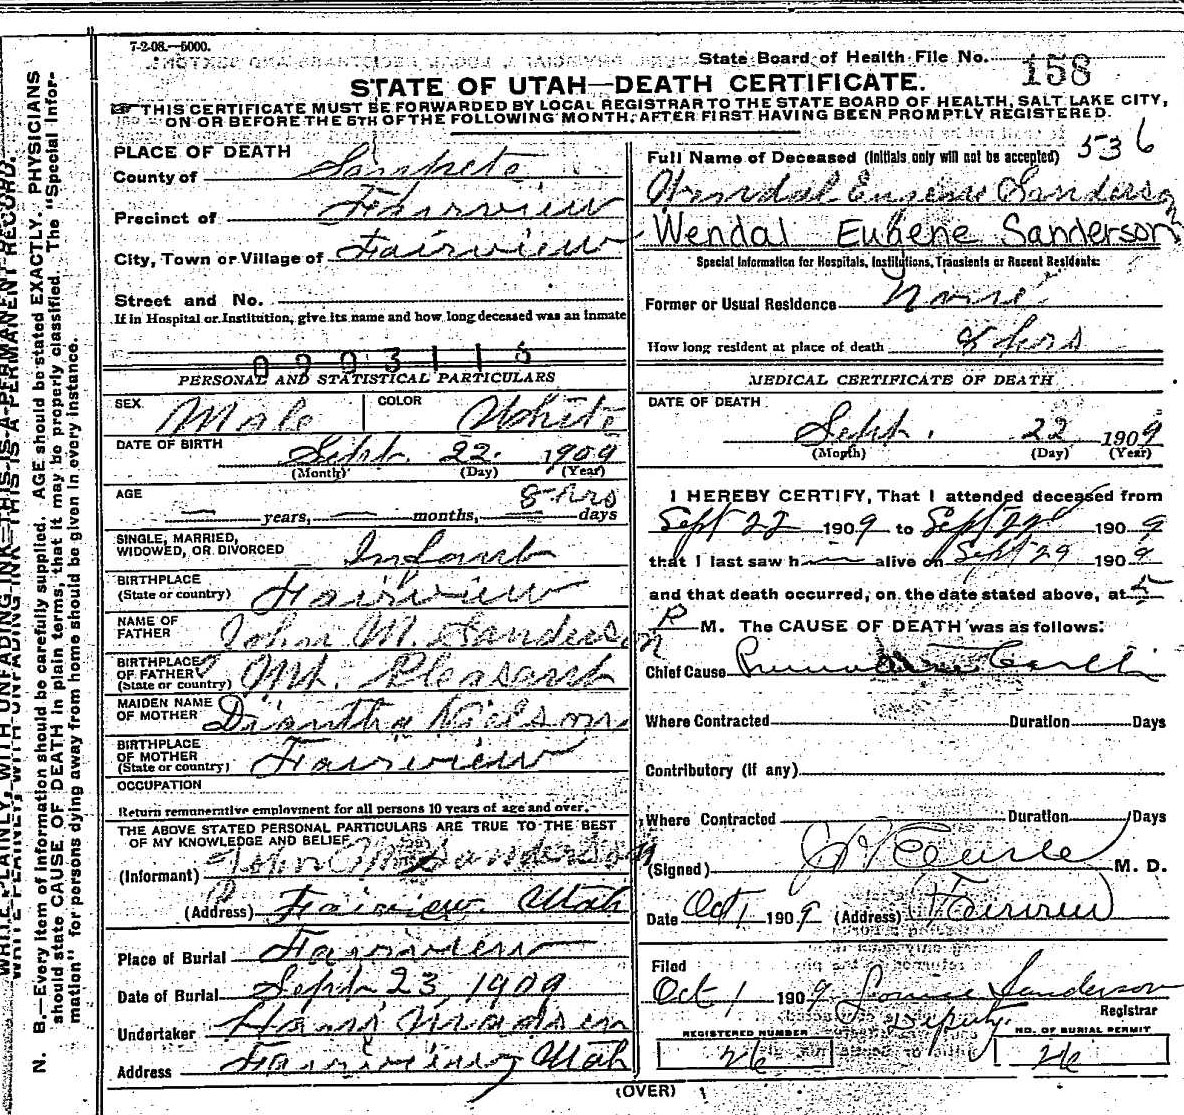 7-2-08.—5000.
State Board of Health File No. 158
STATE OF UTAH—DEATH CERTIFICATE.
THIS CERTIFICATE MUST BE FORWARDED BY LOCAL REGISTRAR TO THE STATE BOARD OF HEALTH, SALT LAKE CITY,
ON OR BEFORE THE 5TH OF THE FOLLOWING MONTH, AFTER FIRST HAVING BEEN PROMPTLY REGISTERED.
PLACE OF DEATH
County of Sanpete
Precinct of Fairview
City, Town or Village of Fairview
Street and No.
If in Hospital or Institution, give its name and how long deceased was an inmate
0903115
PERSONAL AND STATISTICAL PARTICULARS
SEX Male COLOR White
DATE OF BIRTH
Sept. 22. 1909
(Month) (Day) (Year)
AGE 8 hrs
— years, — months, — days
SINGLE, MARRIED,
WIDOWED, OR DIVORCED Infant
BIRTHPLACE
(State or country) Fairview
NAME OF
FATHER John M. Sanderson
BIRTHPLACE
OF FATHER
(State or country) Mt. Pleasant
MAIDEN NAME
OF MOTHER Diantha Nielson
BIRTHPLACE
OF MOTHER
(State or country) Fairview
OCCUPATION
Return remunerative employment for all persons 10 years of age and over.
THE ABOVE STATED PERSONAL PARTICULARS ARE TRUE TO THE BEST
OF MY KNOWLEDGE AND BELIEF
(Informant) John M Sanderson
(Address) Fairview Utah
Place of Burial Fairview
Date of Burial Sept 23, 1909
Undertaker Hans
Address Fairview Utah
536
Full Name of Deceased (Initials only will not be accepted)
Wendal Eugene Sanderson
Wendal Eugene Sanderson
Special Information for Hospitals, Institutions, Transients or Recent Residents:
Former or Usual Residence None
How long resident at place of death 8 hrs
MEDICAL CERTIFICATE OF DEATH
DATE OF DEATH
Sept. 22 1909
(Month) (Day) (Year)
I HEREBY CERTIFY, That I attended deceased from
Sept 22 1909 to Sept 22d 1909
that I last saw him alive on Sept 29 1909
and that death occurred, on the date stated above, at 5
P M. The CAUSE OF DEATH was as follows:
Chief Cause
Where Contracted Duration Days
Contributory (if any)
Where Contracted Duration Days
(Signed) M. D.
Date Oct 1 1909 (Address) Fairview
Filed
Oct 1 1909 Louise Sanderson
Deputy Registrar
REGISTERED NUMBER NO. OF BURIAL PERMIT
26 26
(OVER)
WRITE PLAINLY, WITH UNFADING INK—THIS IS A PERMANENT RECORD.
N. B.—Every item of information should be carefully supplied. AGE should be stated EXACTLY. PHYSICIANS
should state CAUSE OF DEATH in plain terms, that it may be properly classified. The "Special Infor-
mation" for persons dying away from home should be given in every instance.